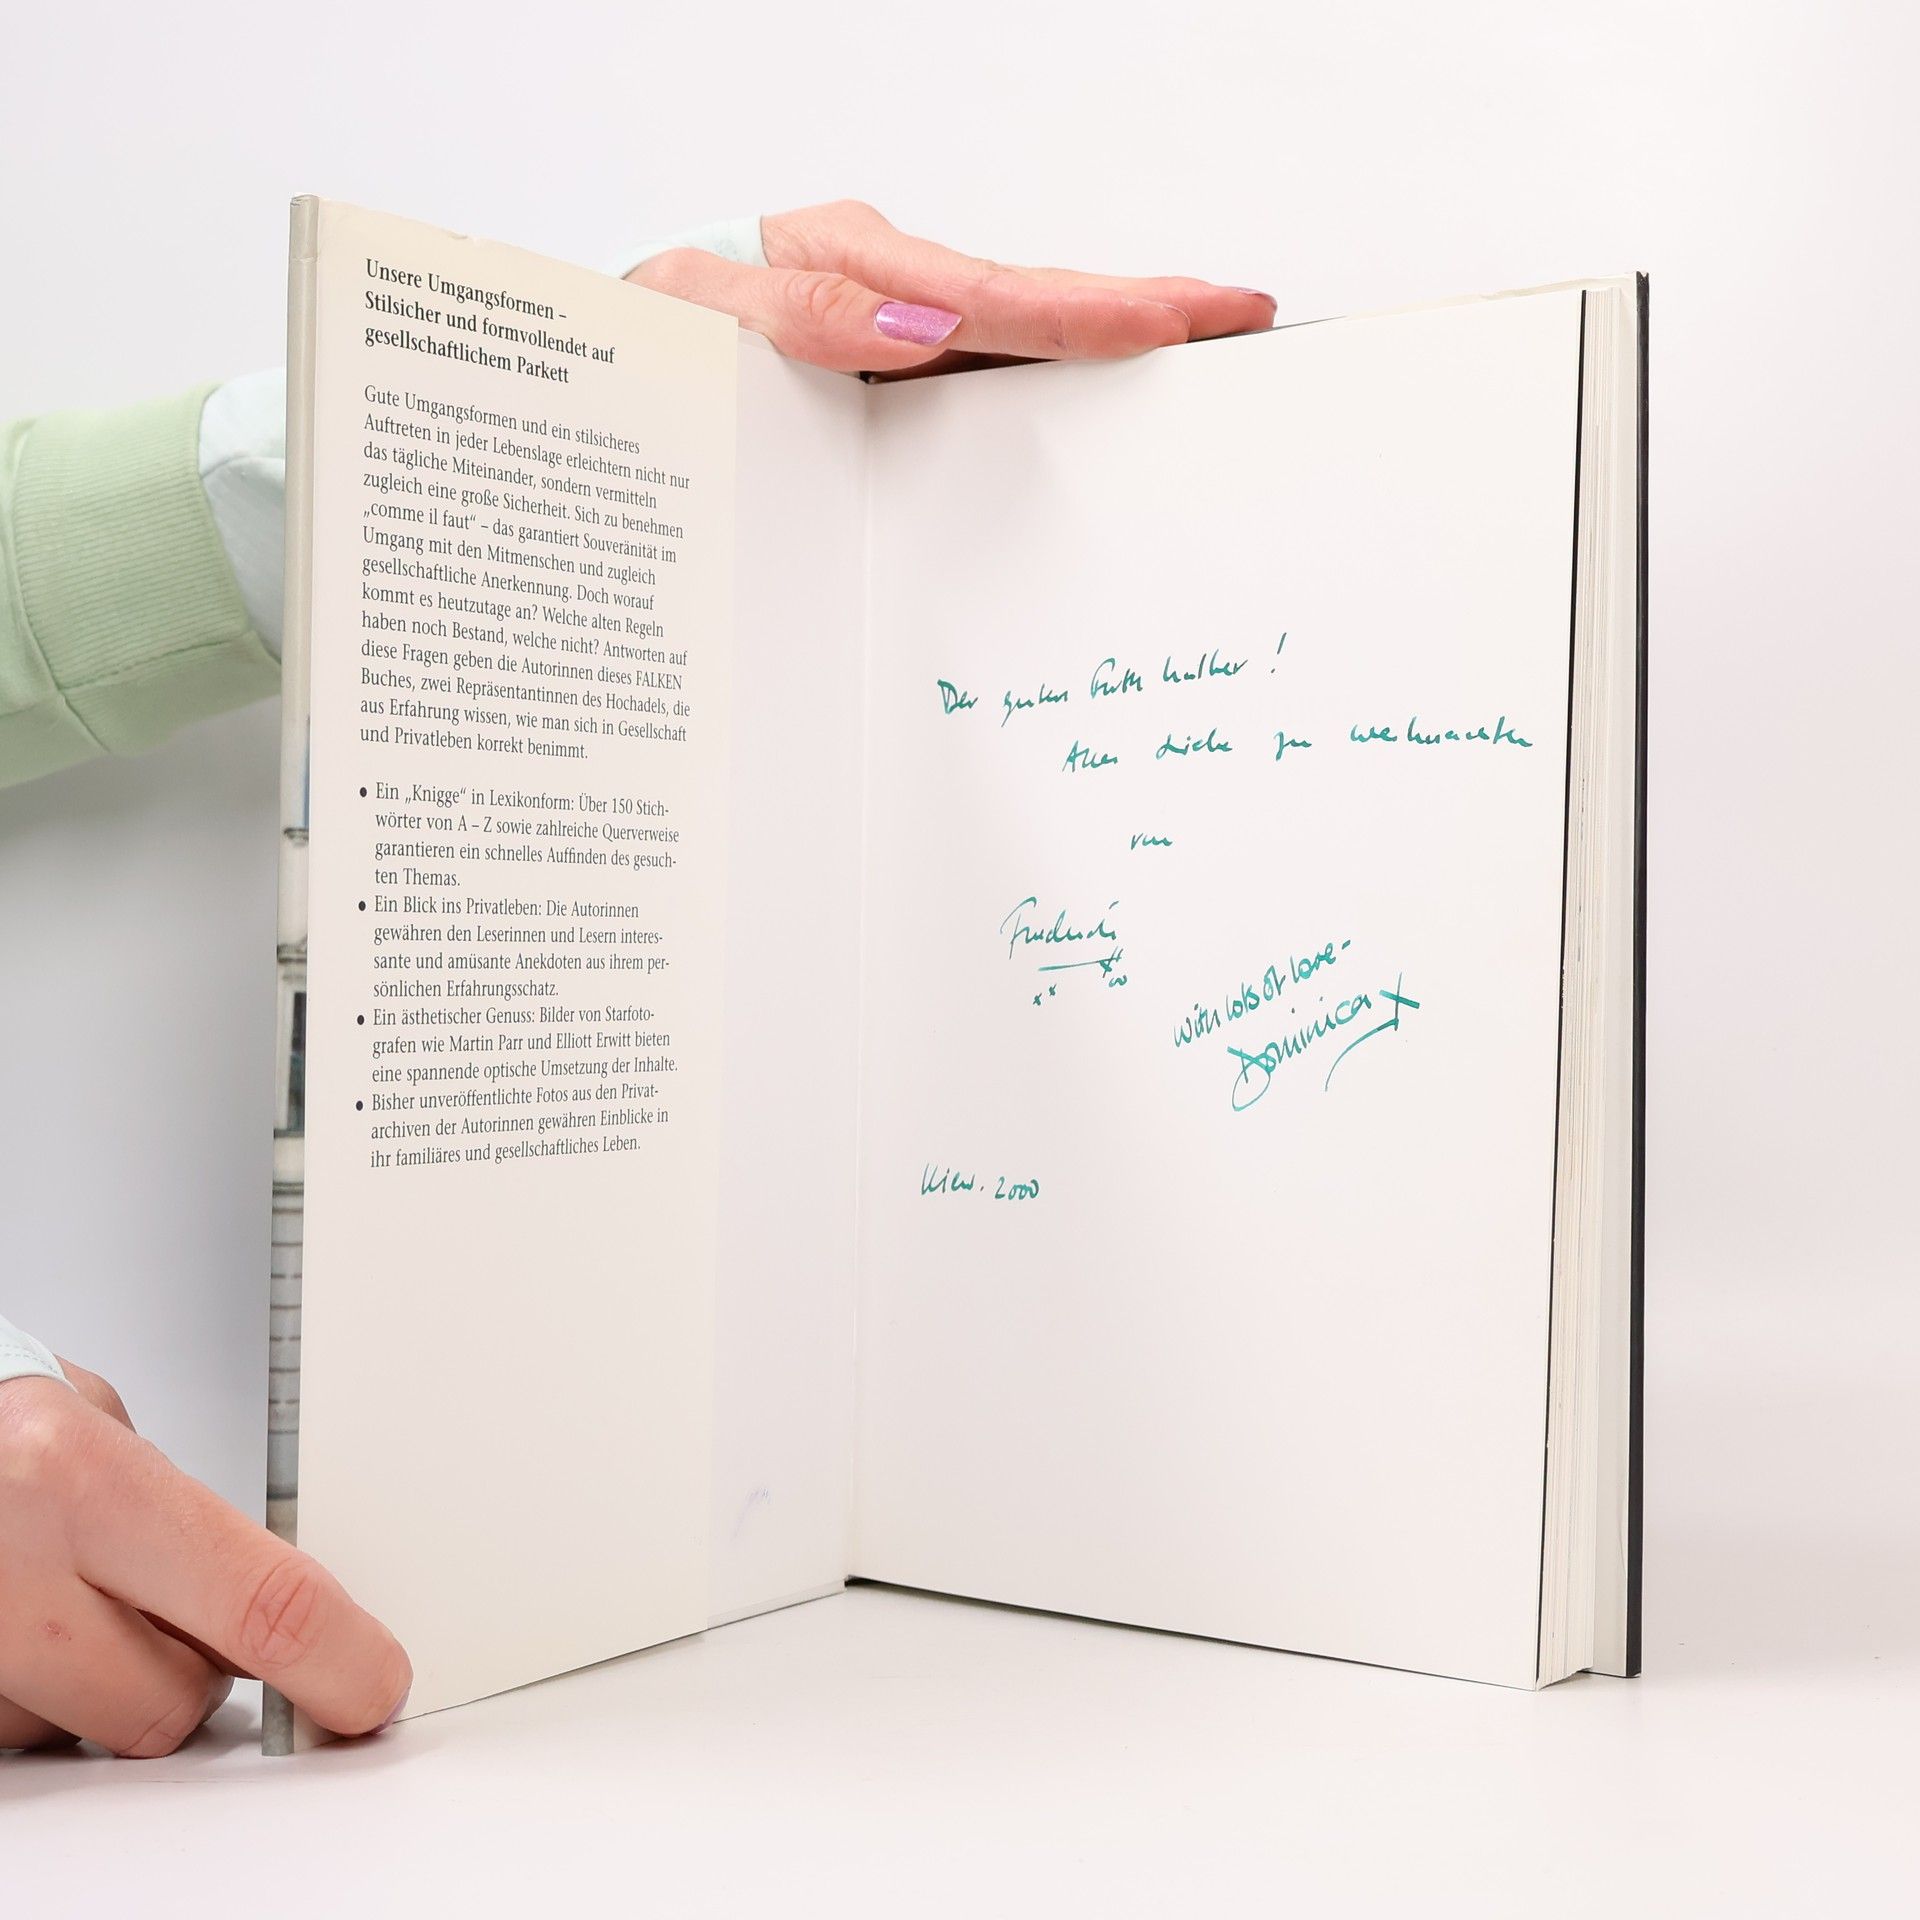 Unsere Umgangsformen –
Stilsicher und formvollendet auf
gesellschaftlichem Parkett
Gute Umgangsformen und ein stilsicheres
Auftreten in jeder Lebenslage erleichtern nicht nur
das tägliche Miteinander, sondern vermitteln
zugleich eine große Sicherheit. Sich zu benehmen
„comme il faut“ – das garantiert Souveränität im
Umgang mit den Mitmenschen und zugleich
gesellschaftliche Anerkennung. Doch worauf
kommt es heutzutage an? Welche alten Regeln
haben noch Bestand, welche nicht? Antworten auf
diese Fragen geben die Autorinnen dieses FALKEN
Buches, zwei Repräsentantinnen des Hochadels, die
aus Erfahrung wissen, wie man sich in Gesellschaft
und Privatleben korrekt benimmt.
• Ein „Knigge“ in Lexikonform: Über 150 Stich-
wörter von A – Z sowie zahlreiche Querverweise
garantieren ein schnelles Auffinden des gesuch-
ten Themas.
• Ein Blick ins Privatleben: Die Autorinnen
gewähren den Leserinnen und Lesern interes-
sante und amüsante Anekdoten aus ihrem per-
sönlichen Erfahrungsschatz.
• Ein ästhetischer Genuss: Bilder von Starfoto-
grafen wie Martin Parr und Elliott Erwitt bieten
eine spannende optische Umsetzung der Inhalte.
• Bisher unveröffentlichte Fotos aus den Privat-
archiven der Autorinnen gewähren Einblicke in
ihr familiäres und gesellschaftliches Leben.
Der guten !
Alles Liebe zu Weihnachten
von
with lots of love -
Dominica x
2000